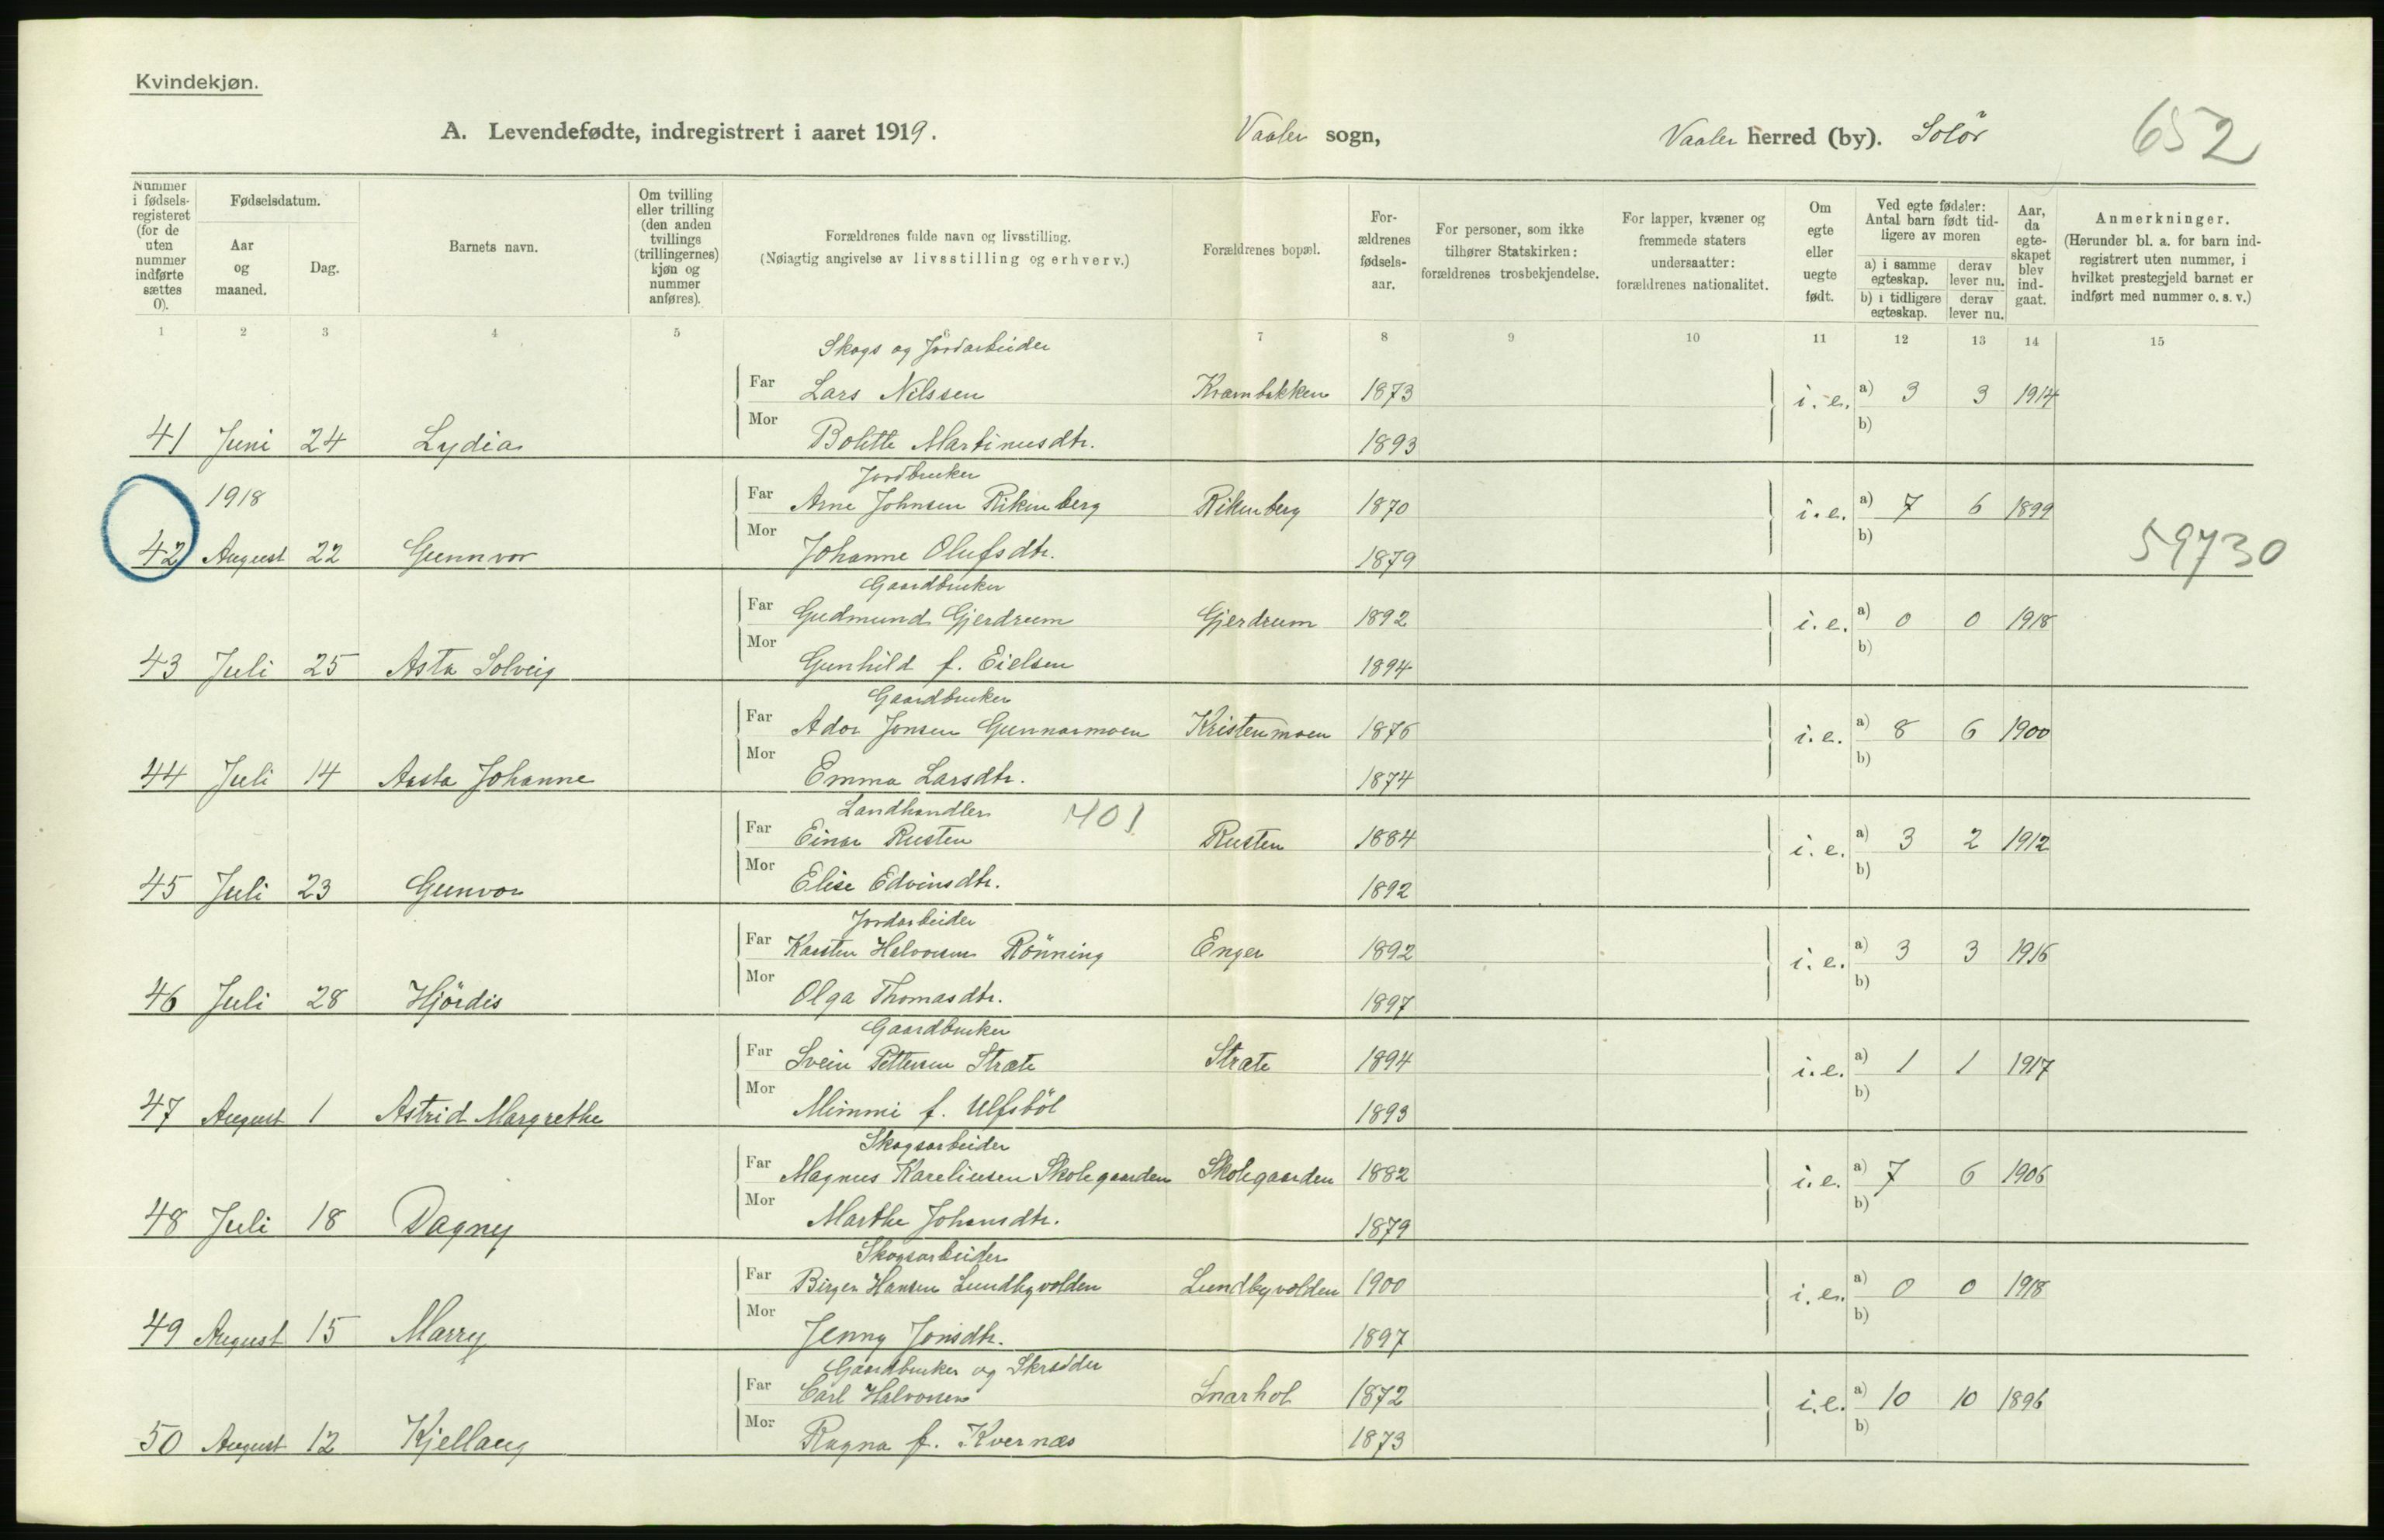 Kvindekjøn.
A. Levendefødte, indregistrert i aaret 1919. Vaaler sogn, Vaaler herred (by). Solör 652
Nummer i fødsels-registeret (for de uten nummer indførte sættes 0).
Fødselsdatum.
Aar og maaned.
Dag.
Barnets navn.
Om tvilling eller trilling (den anden tvillings (trillingernes) kjøn og nummer anføres).
Forældrenes fulde navn og livsstilling.
(Nøiagtig angivelse av livsstilling og erhverv.)
Forældrenes bopæl.
For-ældrenes fødsels-aar.
For personer, som ikke tilhører Statskirken: forældrenes trosbekjendelse.
For lapper, kvæner og fremmede staters undersaatter: forældrenes nationalitet.
Om egte eller uegte født.
Ved egte fødsler: Antal barn født tid-ligere av moren
a) i samme egteskap. derav lever nu.
b) i tidligere egteskap. derav lever nu.
Aar, da egte-skapet blev ind-gaat.
Anmerkninger.
(Herunder bl. a. for barn ind-registrert uten nummer, i hvilket prestegjeld barnet er indført med nummer o. s. v.)
1 2 3 4 5 6 7 8 9 10 11 12 13 14 15
Skogs og Jordarbeider
Far Lars Nilssen Krambakken 1873 i. e. a) 3 3 1914
41 Juni 24 Lydia Mor Bolette Martinusdtr. 1893 b)
Jordbruker
1918 Far Arne Johnsen Rikenberg Rikenberg 1870 i. e. a) 7 6 1899
42 August 22 Gunnvor Mor Johanne Olufsdtr. 1879 b) 59730
Gaardbruker
Far Gudmund Gjerdrum Gjerdrum 1892 i. e. a) 0 0 1918
43 Juli 25 Asta Solveig Mor Gunhild f. Eielsen 1894 b)
Gaardbruker
Far Ador Jonsen Gunnarmoen Kristenmoen 1876 i. e. a) 8 6 1900
44 Juli 14 Aasta Johanne Mor Emma Larsdtr. 1874 b)
Landhandler 401
Far Einar Rusten Rusten 1884 i. e. a) 3 2 1912
45 Juli 23 Gunvor Mor Elise Edvinsdtr. 1892 b)
Jordarbeider
Far Karsten Halvorsen Rönning Enger 1892 i. e. a) 3 3 1916
46 Juli 28 Hjördis Mor Olga Thomasdtr. 1897 b)
Gaardbruker
Far Svein Pettersen Stræte Stræte 1894 i. e. a) 1 1 1917
47 August 1 Astrid Margrethe Mor Mimmi f. Ulfsböl 1893 b)
Skogsarbeider
Far Magnus Kareliusen Skolegaarden Skolegaarden 1882 i. e. a) 7 6 1906
48 Juli 18 Dagny Mor Marthe Johansdtr. 1879 b)
Skogsarbeider
Far Birger Hansen Lundbyvolden Lundbyvolden 1900 i. e. a) 0 0 1918
49 August 15 Marry Mor Jenny Jonsdtr. 1897 b)
Gaardbruker og Skrædder
Far Carl Halvorsen Snarhol 1872 i. e. a) 10 10 1896
50 August 12 Kjellaug Mor Ragna f. Kvernæs 1873 b)